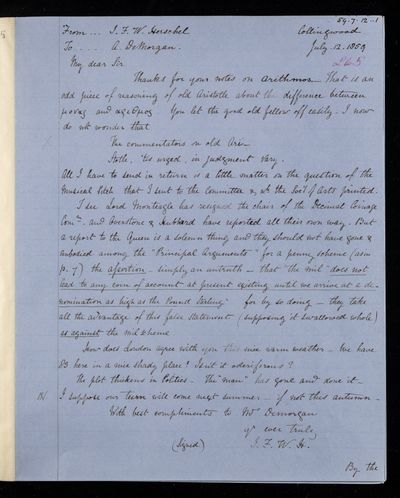 59.7.12.1
From ... J. F. W. Herschel Collingwood
To .... A. DeMorgan. July. 12. 1859
My dear Sir
Thanks for your notes on Arithmos — That is an
odd piece of reasoning of old Aristotle about the difference between
μονας and αριθμος You let the good old fellow off easily. I now
do not wonder that
The commentators on old Aris-
totle, 'tis urged, in judgment vary.
All I have to send in return is a little matter on the question of the
Musical Pitch that I sent to the Committee & wh the Socy of Arts printed.
I see Lord Monteagle has resigned the chair of the Decimal Coinage
Comn. and Overstone & Hubbard have reported all their own way. But
a report to the Queen is a solemn thing and they should not have gone &
embodied among the "Principal Arguments" for a penny scheme
p. 7) the assertion — simply an untruth — that "the mil does not
lead to any coin of account at present existing until we arrive at a de-
nomination as high as the Pound Sterling" for by so doing — they take
all the advantage of this false statement (supposing it swallowed whole)
as against the mil scheme
How does London agree with you this nice warm weather — We have
83 here in a nice shady place! Isn't it odoriferous?
The plot thickens in Politics. The "man" has gone and done it —
I suppose our turn will come next summer — if not this autumn —
With best compliments to Mrs Demorgan
yrs ever truly
(Signed) J. F. W. H.
By the